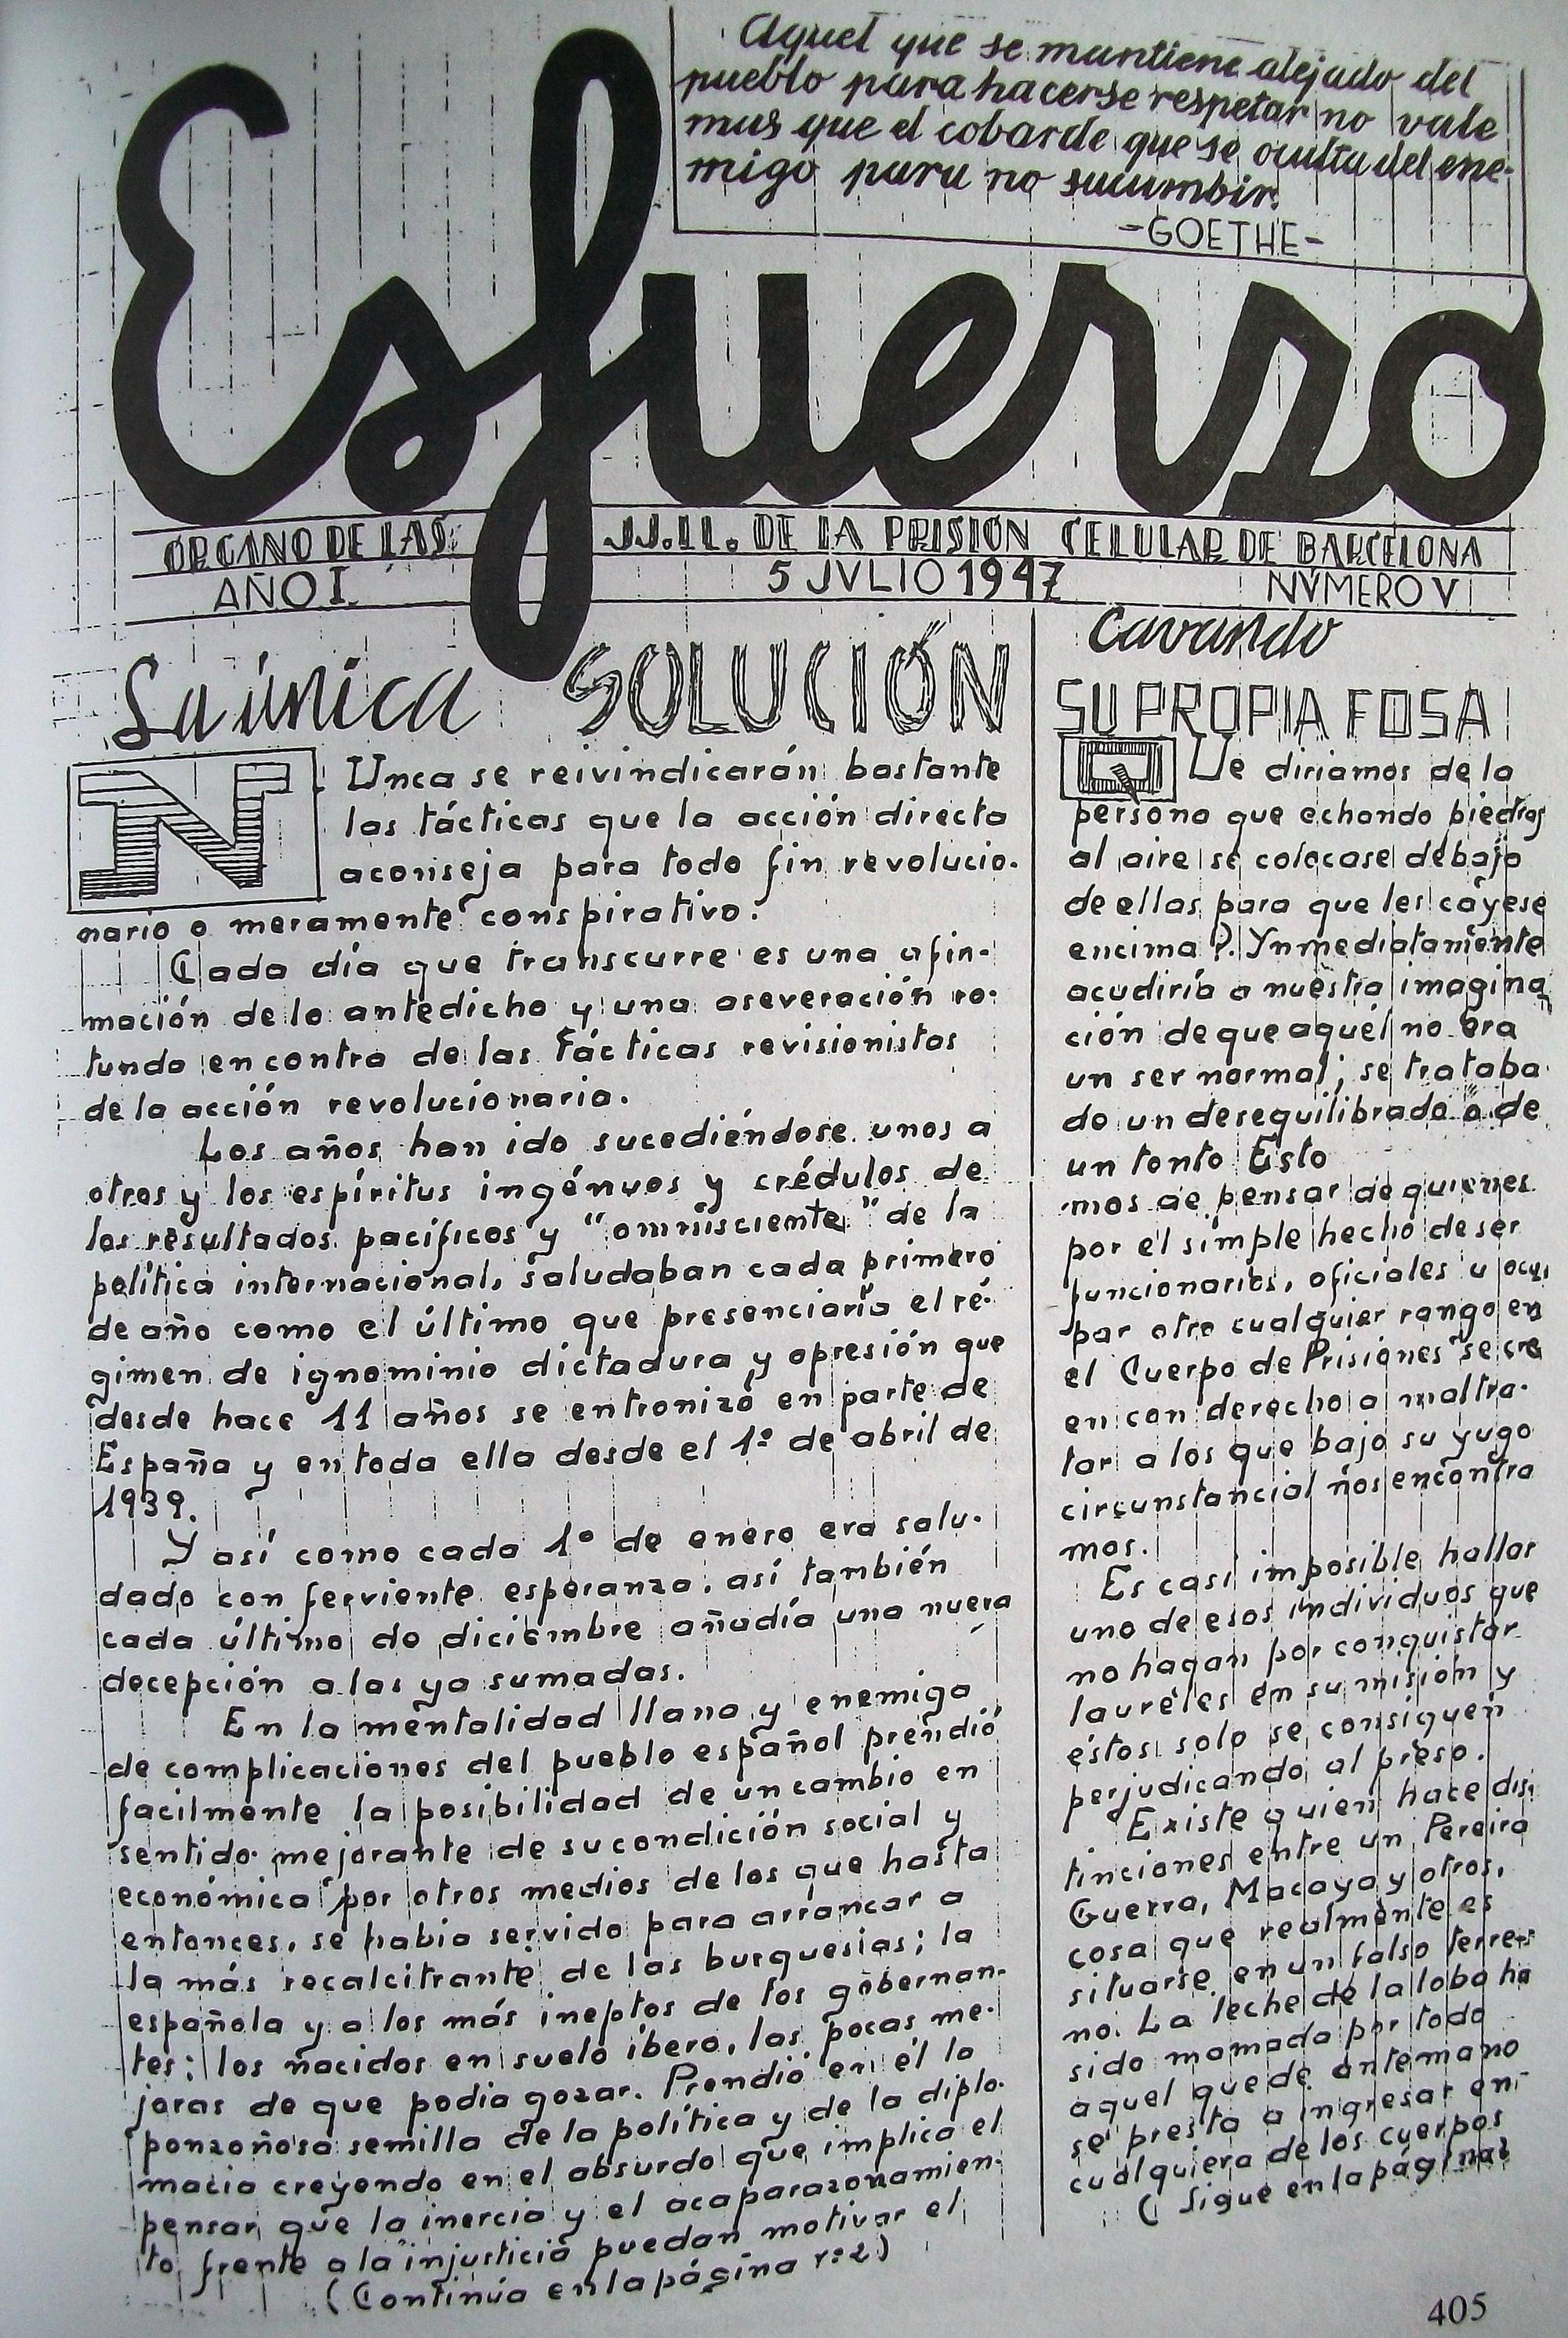 Aquel que se mantiene alejado del
pueblo para hacerse respetar no vale
mas que el cobarde que se oculta del ene-
migo para no sucumbir.
-GOETHE-
Esfuerzo
ÓRGANO DE LAS JJ.LL. DE LA PRISIÓN CELULAR DE BARCELONA
AÑO I 5 JVLIO 1947 NÚMERO V
La única SOLUCIÓN
NUnca se reivindicarán bastante
las tácticas que la acción directa
aconseja para todo fin revolucio-
nario o meramente conspirativo.
Cada día que transcurre es una afir-
mación de lo antedicho y una aseveración ro-
tunda en contra de las tácticas revisionistas
de la acción revolucionaria.
Los años han ido sucediéndose unos a
otros y los espíritus ingénuos y crédulos de
los resultados pacíficos y "omnisciente" de la
política internacional, saludaban cada primero
de año como el último que presenciaría el ré-
gimen de ignominio dictadura y opresión que
desde hace 11 años se entronizó en parte de
España y en toda ella desde el 1º de abril de
1939.
Y así como cada 1º de enero era salu-
dado con ferviente esperanza, así también
cada último de diciembre añadía una nueva
decepción a las ya sumadas.
En la mentalidad llana y enemiga
de complicaciones del pueblo español prendió
facilmente la posibilidad de un cambio en
sentido mejorante de su condición social y
económica por otros medios de los que hasta
entonces, se había servido para arrancar a
la más recalcitrante de las burguesías; la
española y a los más ineptos de los gobernan-
tes: los nacidos en suelo ibero, las pocas me-
joras de que podía gozar. Prendió en él la
ponzoñosa semilla de la política y de la diplo-
macia creyendo en el absurdo que implica el
pensar que la inercia y el acaparazonamien-
to frente a la injusticia puedan motivar el
(Continúa en la página nº 2)
Cavando
SU PROPIA FOSA
QUe diríamos de la
persona que echando piedras
al aire se colocase debajo
de ellas para que les cayese
encima?. Ynmediatamente
acudiría a nuestra imagina
ción de que aquél no era
un ser normal; se trataba
de un desequilibrado o de
un tonto Esto
mos de pensar de quienes
por el simple hecho de ser
funcionarios, oficiales u ocu
par otro cualquier rango en
el Cuerpo de Prisiones se cre
en con derecho a maltra-
tar a los que bajo su yugo
circunstancial nos encontra
mos.
Es casi imposible hallar
uno de esos individuos que
no hagan por conquistar
laureles en su misión y
éstos solo se consiguen
perjudicando al preso.
Existe quien hace dis-
tinciones entre un Pereira
Guerra, Macaya y otros,
cosa que realmente es
situarse en un falso terre-
no. La leche de la loba ha
sido mamada por todo
aquel que de antemano
se presta a ingresar en
cualquiera de los cuerpos
(Sigue en la página 2
405